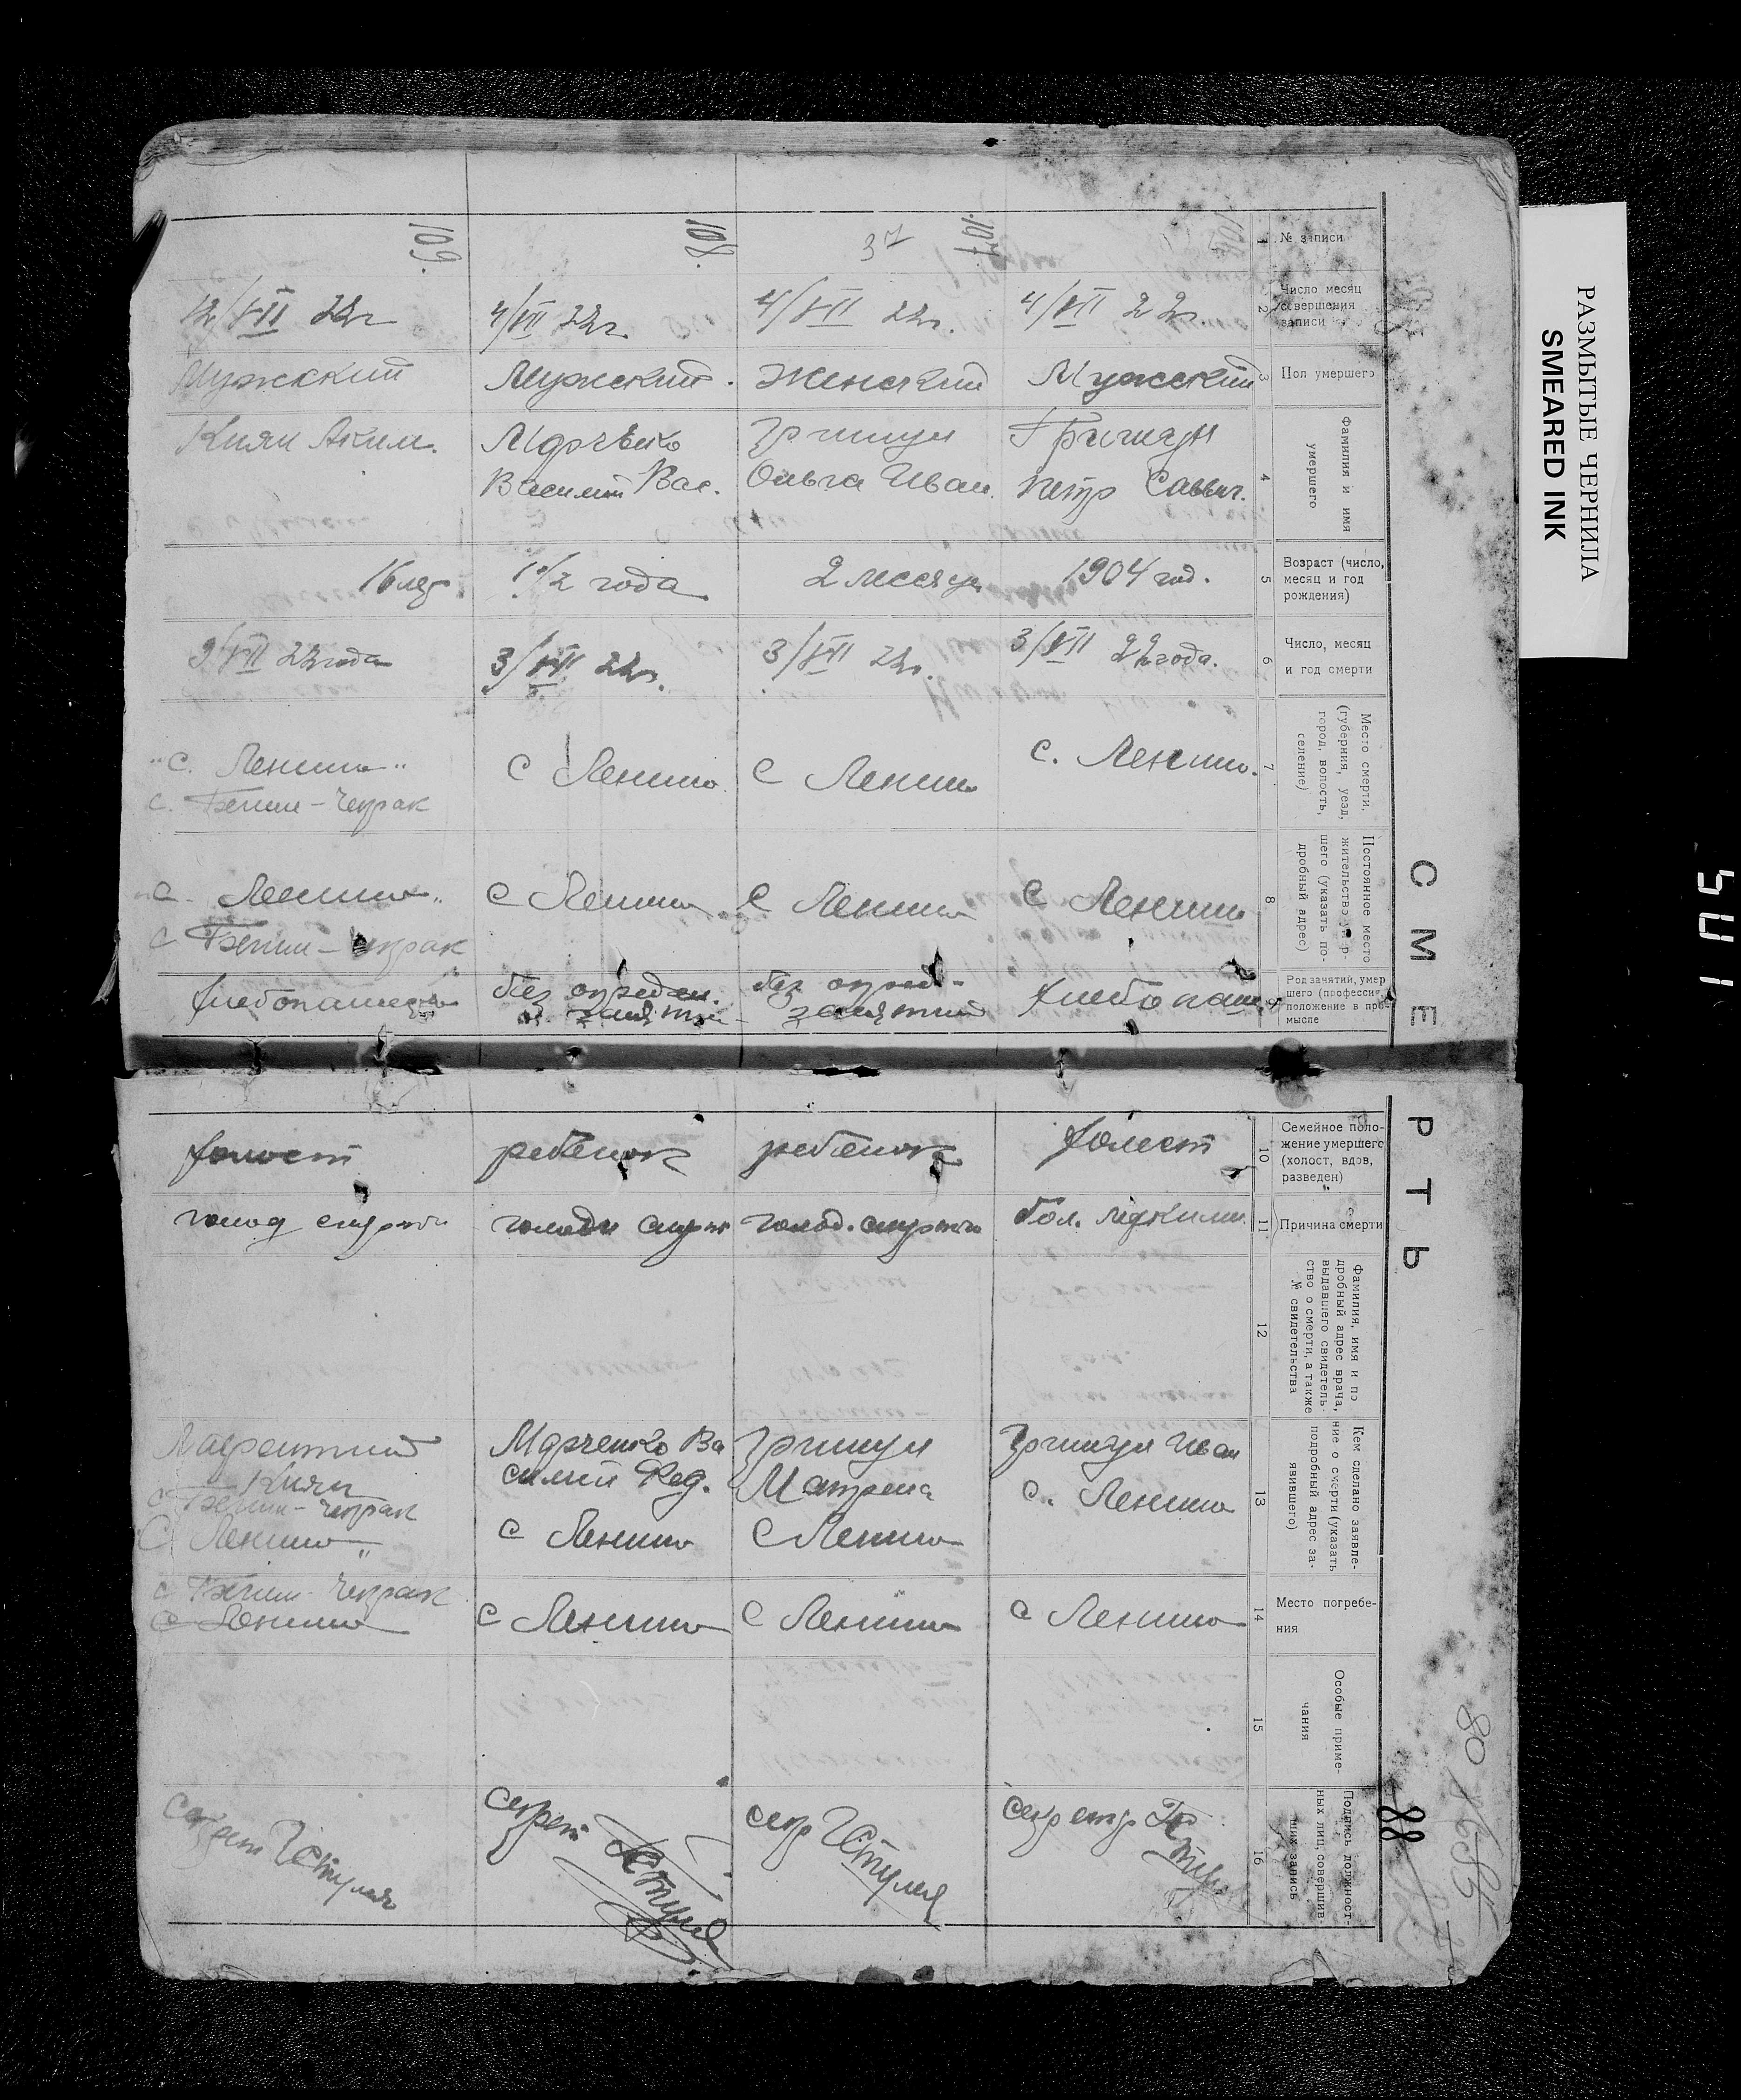 РАЗМЫТЫЕ ЧЕРНИЛА
SMEARED INK
501
СМЕРТЬ
88
80
1 № записи
107.
37
108.
109.
2 Число месяц
совершения
записи
4/VII 22г.
4/VII 22г.
4/VII 22г.
12/VII 22г
3 Пол умершего
Мужский
Женский
Мужский.
Мужский
4 Фамилия и имя
умершего
Гришун
Петр Саввич.
Гришун
Ольга Иван.
Василий Вас.
Киян Аким.
5 Возраст (число,
месяц и год
рождения)
1904 год.
2 месяца
1 1/2 года
16 лет
6 Число, месяц
и год смерти
3/VII 22 года.
3/VII 22г.
3/VII 22г.
9/VII 22 года
7 Место смерти,
(губерния, уезд,
город, волость,
селение)
с. Ленино.
с Ленино
с Ленино
"с. Ленино"
с. Бешик-Чекрак
8 Постоянное место
жительство умер-
шего (указать по-
дробный адрес)
с Ленино
с Ленино
с Ленино
"с. Ленино"
9 Род занятий, умер
шего (профессия,
положение в про-
мысле
хлебопаш.
без опред.
занятий
без определ.
занятий
10 Семейное поло-
жение умершего
(холост, вдов,
разведен)
холост
ребенок
ребенок
холост
11 Причина смерти
голод. смерть
голодн смерт
голод смерть
12 Фамилия, имя и по
дробный адрес врача,
выдавшего свидетель-
ство о смерти, а также
№ свидетельства
13 Кем сделано заявле-
ние о смерти (указать
подробный адрес за-
явившего)
Гришун Иван
с. Ленино
Гришун
Матрена
с Ленино
Марченко Ва
силий Фед.
с Ленино
Киян
с Бешик-Чекрак
с Ленино
14 Место погребе-
ния
с Ленино
с Ленино
с Ленино
с Бешик-Чекрак
с Ленино
15 Особые приме-
чания
16 Подпись должност-
ных лиц, совершив-
ших запись
секретр
секр
секрет
секрет